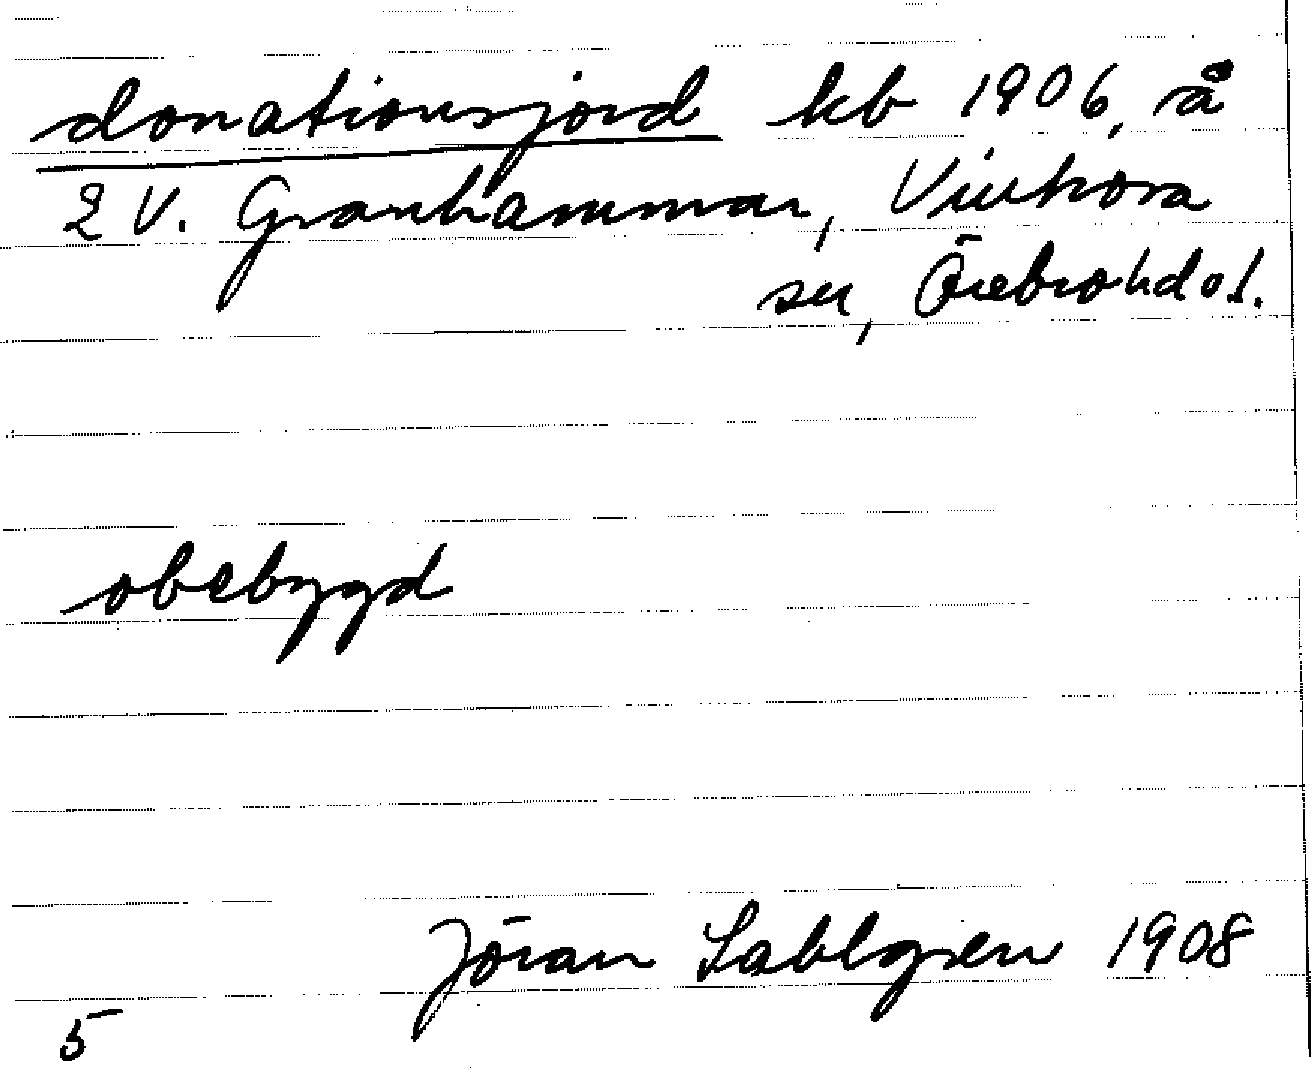 donationsjord kb 1906, å
2 V. Granhammar, Vintrosa
sn, Örebro hd o l.
obebygd
Jöran Sahlgren 1908
5